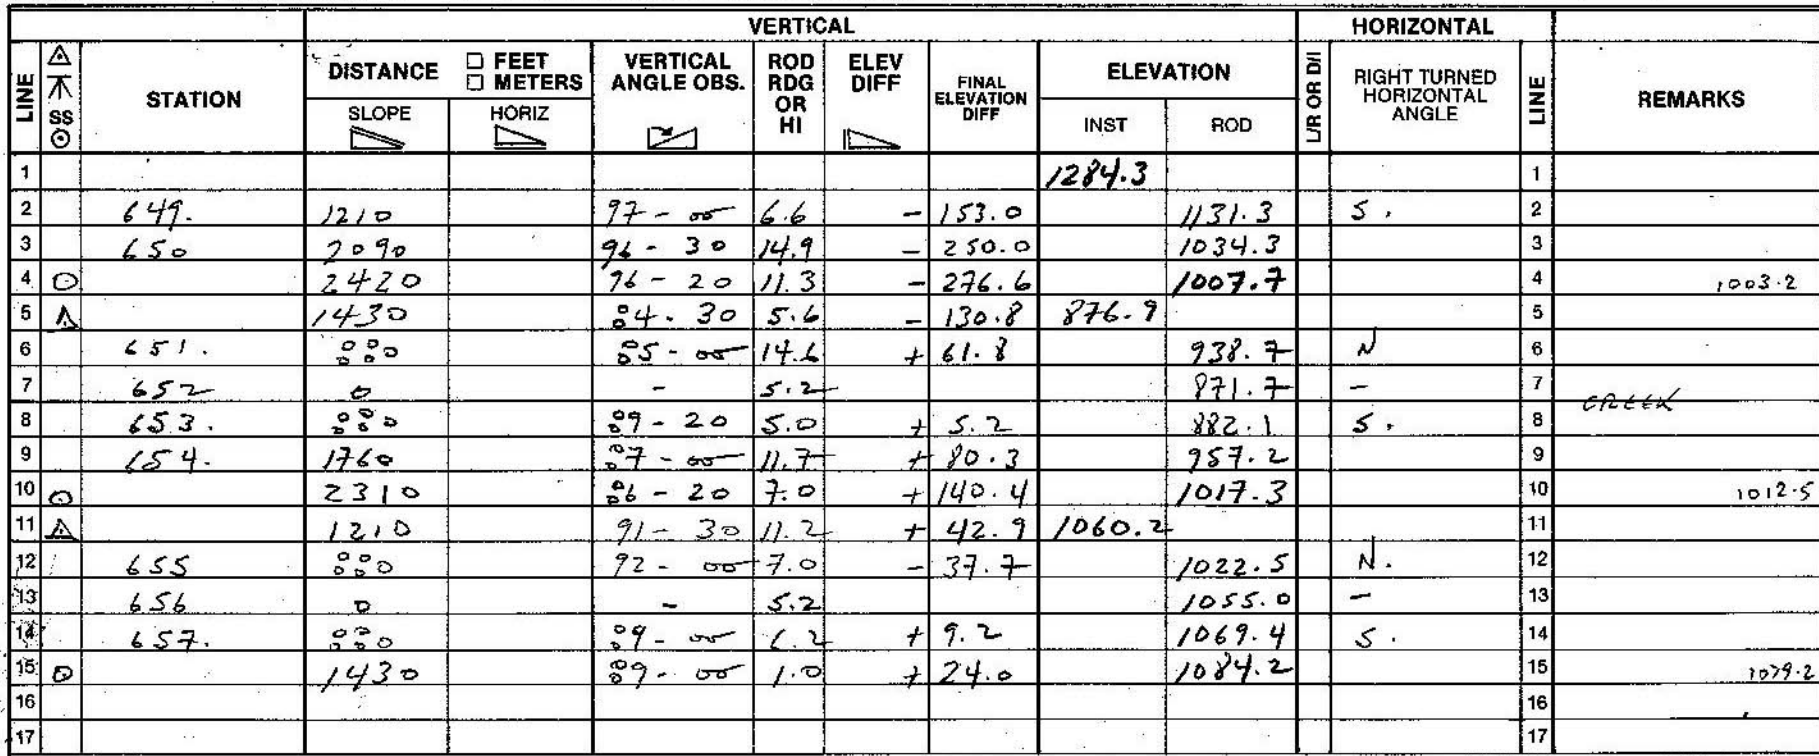 VERTICAL HORIZONTAL
LINE SS STATION DISTANCE □ FEET □ METERS SLOPE HORIZ VERTICAL ANGLE OBS. ROD RDG OR HI ELEV DIFF FINAL ELEVATION DIFF ELEVATION INST ROD L/R OR D/I RIGHT TURNED HORIZONTAL ANGLE LINE REMARKS
1 1284.3 1
2 649. 1210 97 - 00 6.6 - 153.0 1131.3 S. 2
3 650 2090 96 - 30 14.9 - 250.0 1034.3 3
4 2420 96 - 20 11.3 - 276.6 1007.7 4 1003.2
5 1430 84 - 30 5.6 - 130.8 876.9 5
6 651. 85 - 00 14.6 + 61.8 938.7 N 6
7 652 0 - 5.2 871.7 - 7 CREEK
8 653. 89 - 20 5.0 + 5.2 882.1 S. 8
9 654. 1760 87 - 00 11.7 + 80.3 957.2 9
10 2310 86 - 20 7.0 + 140.4 1017.3 10 1012.5
11 1210 91 - 30 11.2 + 42.9 1060.2 11
12 655 92 - 00 7.0 - 37.7 1022.5 N. 12
13 656 0 - 5.2 1055.0 - 13
14 657. 89 - 00 6.2 + 9.2 1069.4 S. 14
15 1430 89 - 00 1.0 + 24.0 1084.2 15 1079.2
16 16
17 17